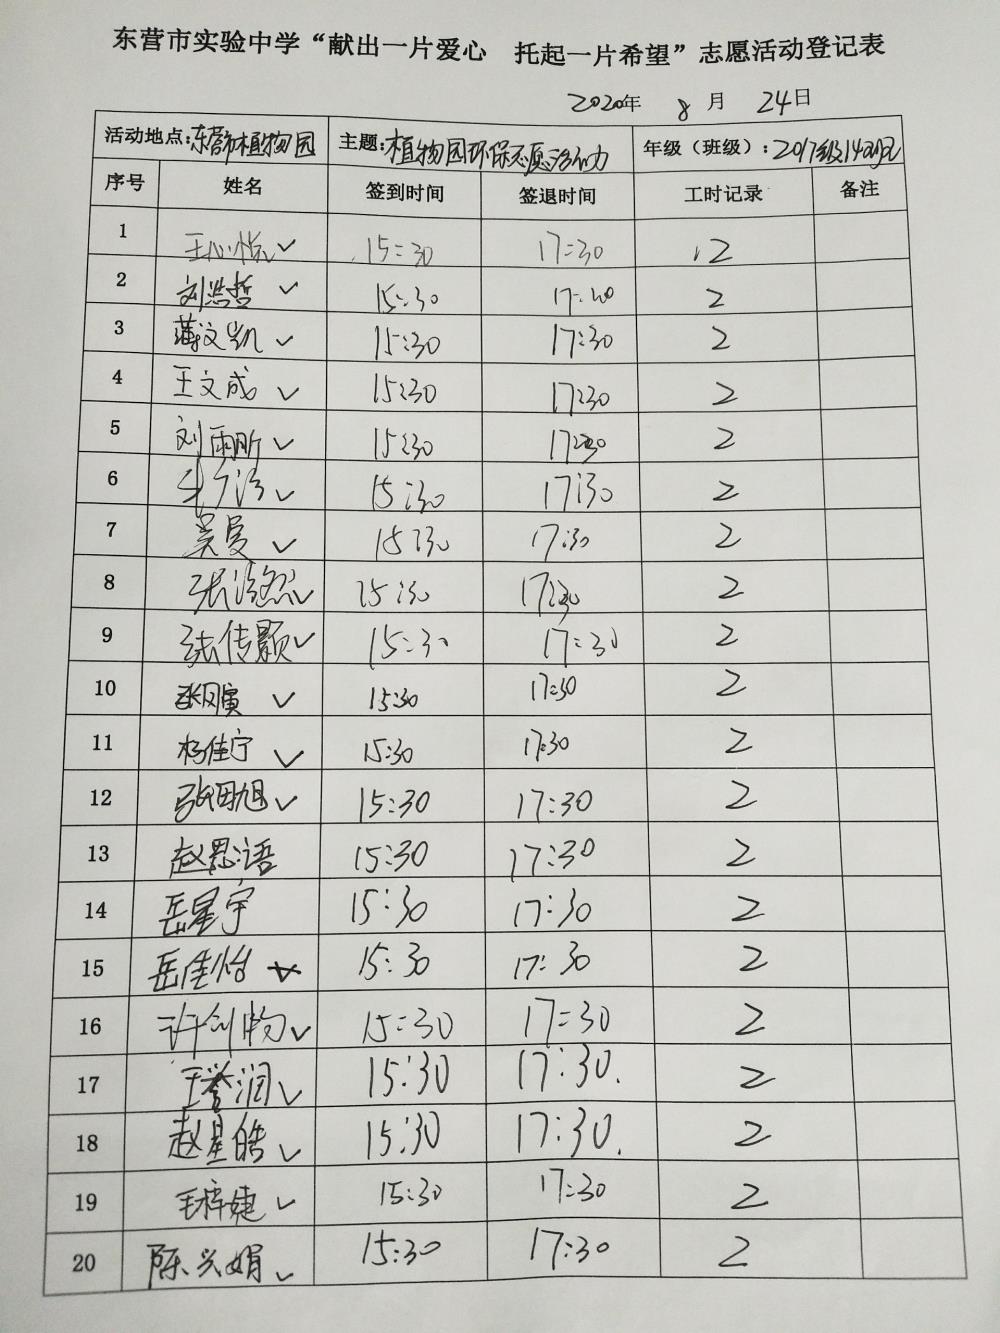 东营市实验中学“献出一片爱心 托起一片希望”志愿活动登记表
2020年 8月 24日
活动地点:东营市植物园 主题:植物园环保志愿活动 年级（班级）: 2017级14班
序号 姓名 签到时间 签退时间 工时记录 备注
1 王心怡 ✓ 15:30 17:30 2
2 刘浩哲 ✓ 15:30 17:30 2
3 薄文凯 ✓ 15:30 17:30 2
4 王文成 ✓ 15:30 17:30 2
5 刘雨昕 ✓ 15:30 17:30 2
6 ✓ 15:30 17:30 2
7 吴曼 ✓ 15:30 17:30 2
8 张悠然 ✓ 15:30 17:30 2
9 张传颖 ✓ 15:30 17:30 2
10 ✓ 15:30 17:30 2
11 杨佳宁 ✓ 15:30 17:30 2
12 ✓ 15:30 17:30 2
13 赵思语 15:30 17:30 2
14 岳星宇 15:30 17:30 2
15 岳佳怡 15:30 17:30 2
16 ✓ 15:30 17:30 2
17 王誉润 ✓ 15:30 17:30. 2
18 赵星皓 ✓ 15:30 17:30. 2
19 王梓婕 ✓ 15:30 17:30 2
20 陈兴娟 ✓ 15:30 17:30 2